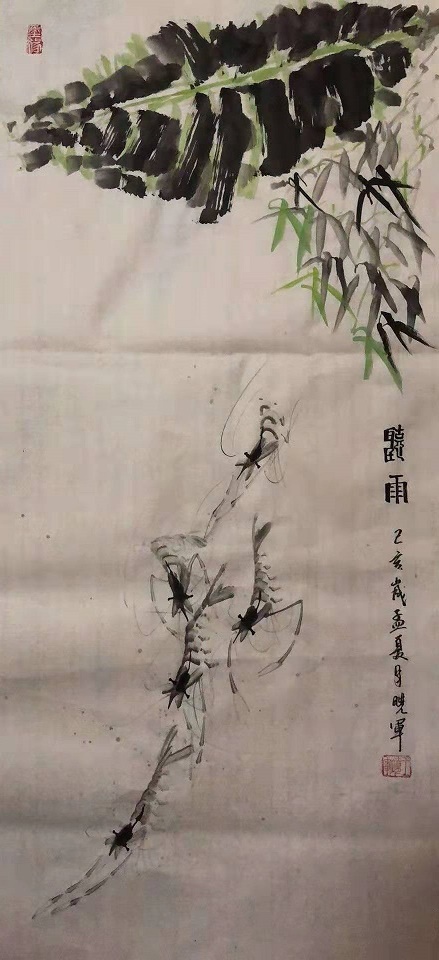 聽雨 己亥歲孟夏月晓軍